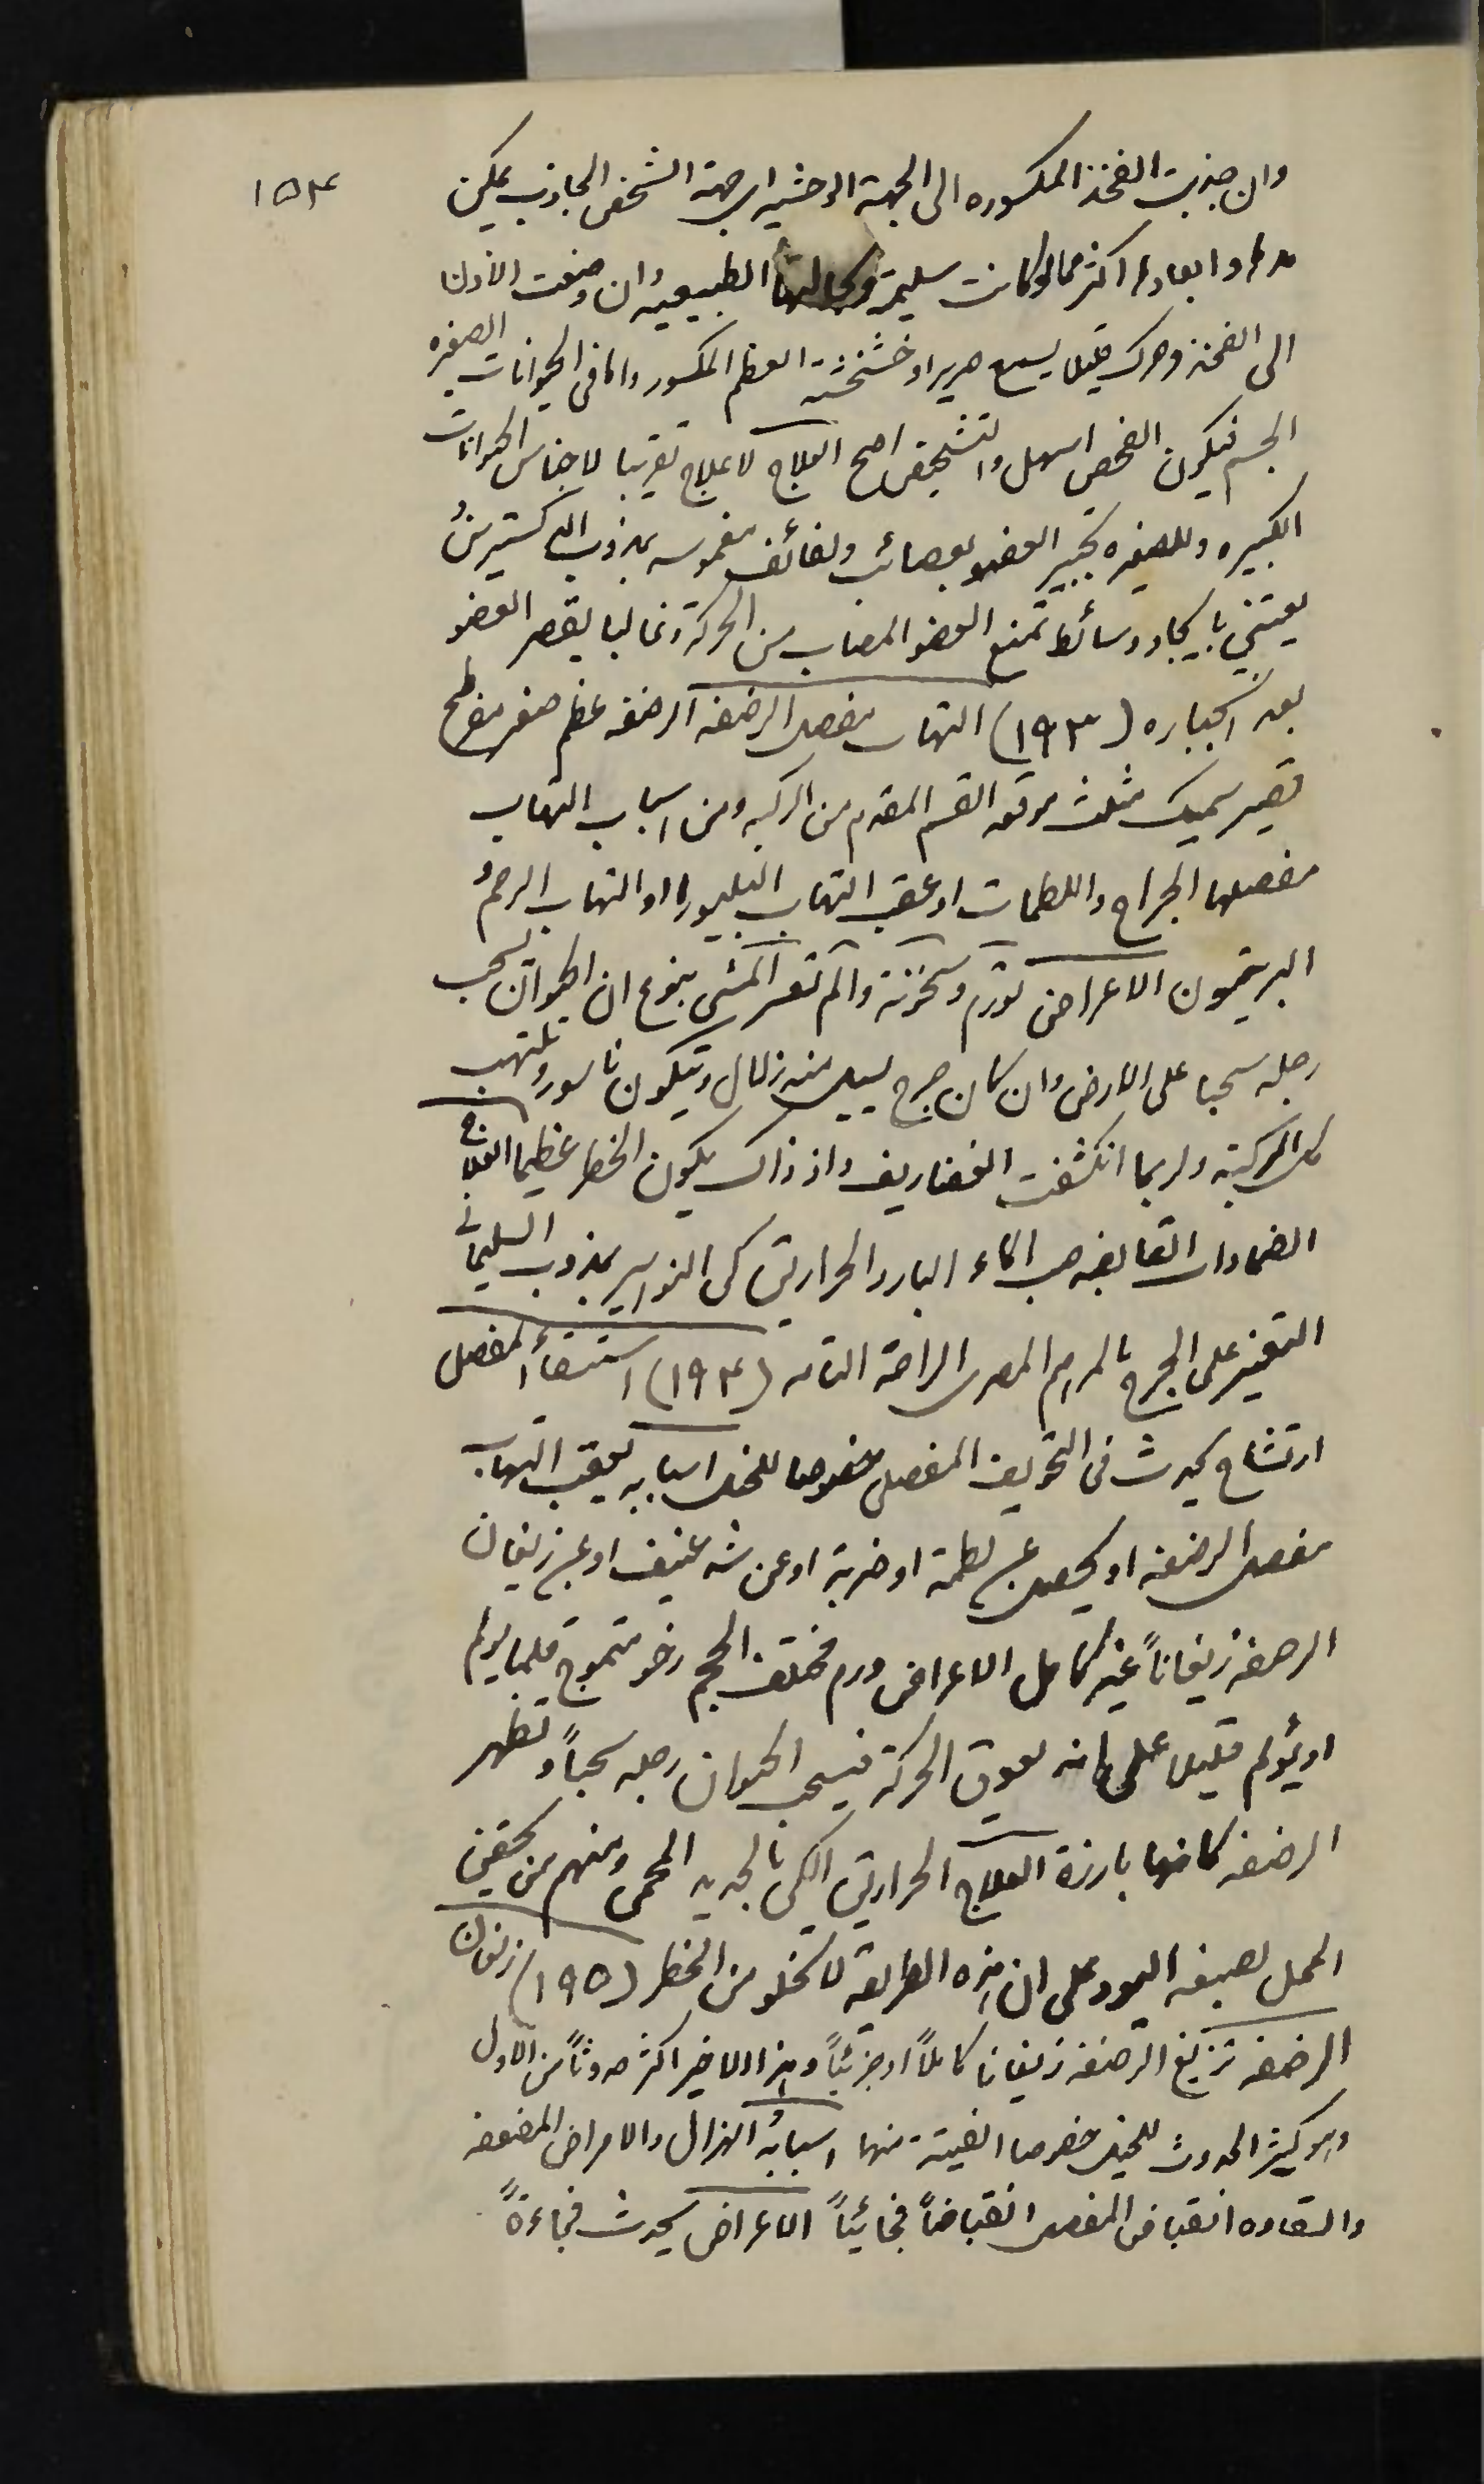 ١٥٤
وان جذبت الفخذ المكسوره الى الجهة الوحشيه اي جهة الشخص الجاذب يمكن
مدها وابعادها اكثر مما لو كانت سليمة وبحالتها الطبيعيه وان وضعت الاذن
الى الفخذ وحرك قليلا يسمع صرير او خشخشة العظم المكسور واما في الحيوانات الصغيره
الجسم فيكون الفحص اسهل والتشخيص اصح العلاج لا علاج تقريبا لاجناس الحيوانات
الكبيره وللصغيره تجبير العضو بعصائب ولفائف مغموسه بمذوب الدكسترين و
يعتني بايجاد وسائط تمنع العضو المصاب من الحركة وغالبا يقصر العضو
بعد انجباره (١٩٣) التهاب مفصل الرضفه الرضفه عظم صغير مفرطح
قصير سميك مثلث موقعه القسم المقدم من الركبه ومن اسباب التهاب
مفصلها الجراح واللطمات او عقب التهاب البليورا او التهاب الرحم و
البريتون الاعراض تورم وسخونة والم تعسر المشي بنوع ان الحيوان يسحب
رجله سحبا على الارض وان كان جرح يسيل منه زلال ويتكون ناسور وتلتهب
كل الركبة ولربما انكشفت الغضاريف واذ ذاك يكون الخطر عظيما العلاج
الضمادات القابضه صب الماء البارد الحراريق كي النواسير بمذوب السليماني
التغيير على الجرح بالمرهم المصري الراحة التامه (١٩٤) استسقاء المفصل
ارتشاح يحدث في التجويف المفصلي خصوصا للخيل اسبابه يعقب التهاب
مفصل الرضفه او يحصل عن لطمة او ضربة او عن شد عنيف او عن زيغان
الرضفه زيغاناً غير كامل الاعراض ورم مختلف الحجم رخو متموج قلما يولم
او يؤلم قليلا على انه يعوق الحركة فيسحب الحيوان رجله سحباً وتظهر
الرضفه كانها بارزة العلاج الحراريق الكي بالحديد المحمى ومنهم من يحقن
المحل بصبغه اليود على ان هذه الطريقه لا تخلو من الخطر (١٩٥) زيغان
الرضفه تزيغ الرضفه زيغانا كاملاً او جزئياً وهذا الاخير اكثر حدوثاً من الاول
وهو كثير الحدوث للخيل خصوصا الفتية منها اسبابه الهزال والامراض المضعفه
والعاده انقباض المفصل انقباضاً فجائياً الاعراض يحدث فجاءةً